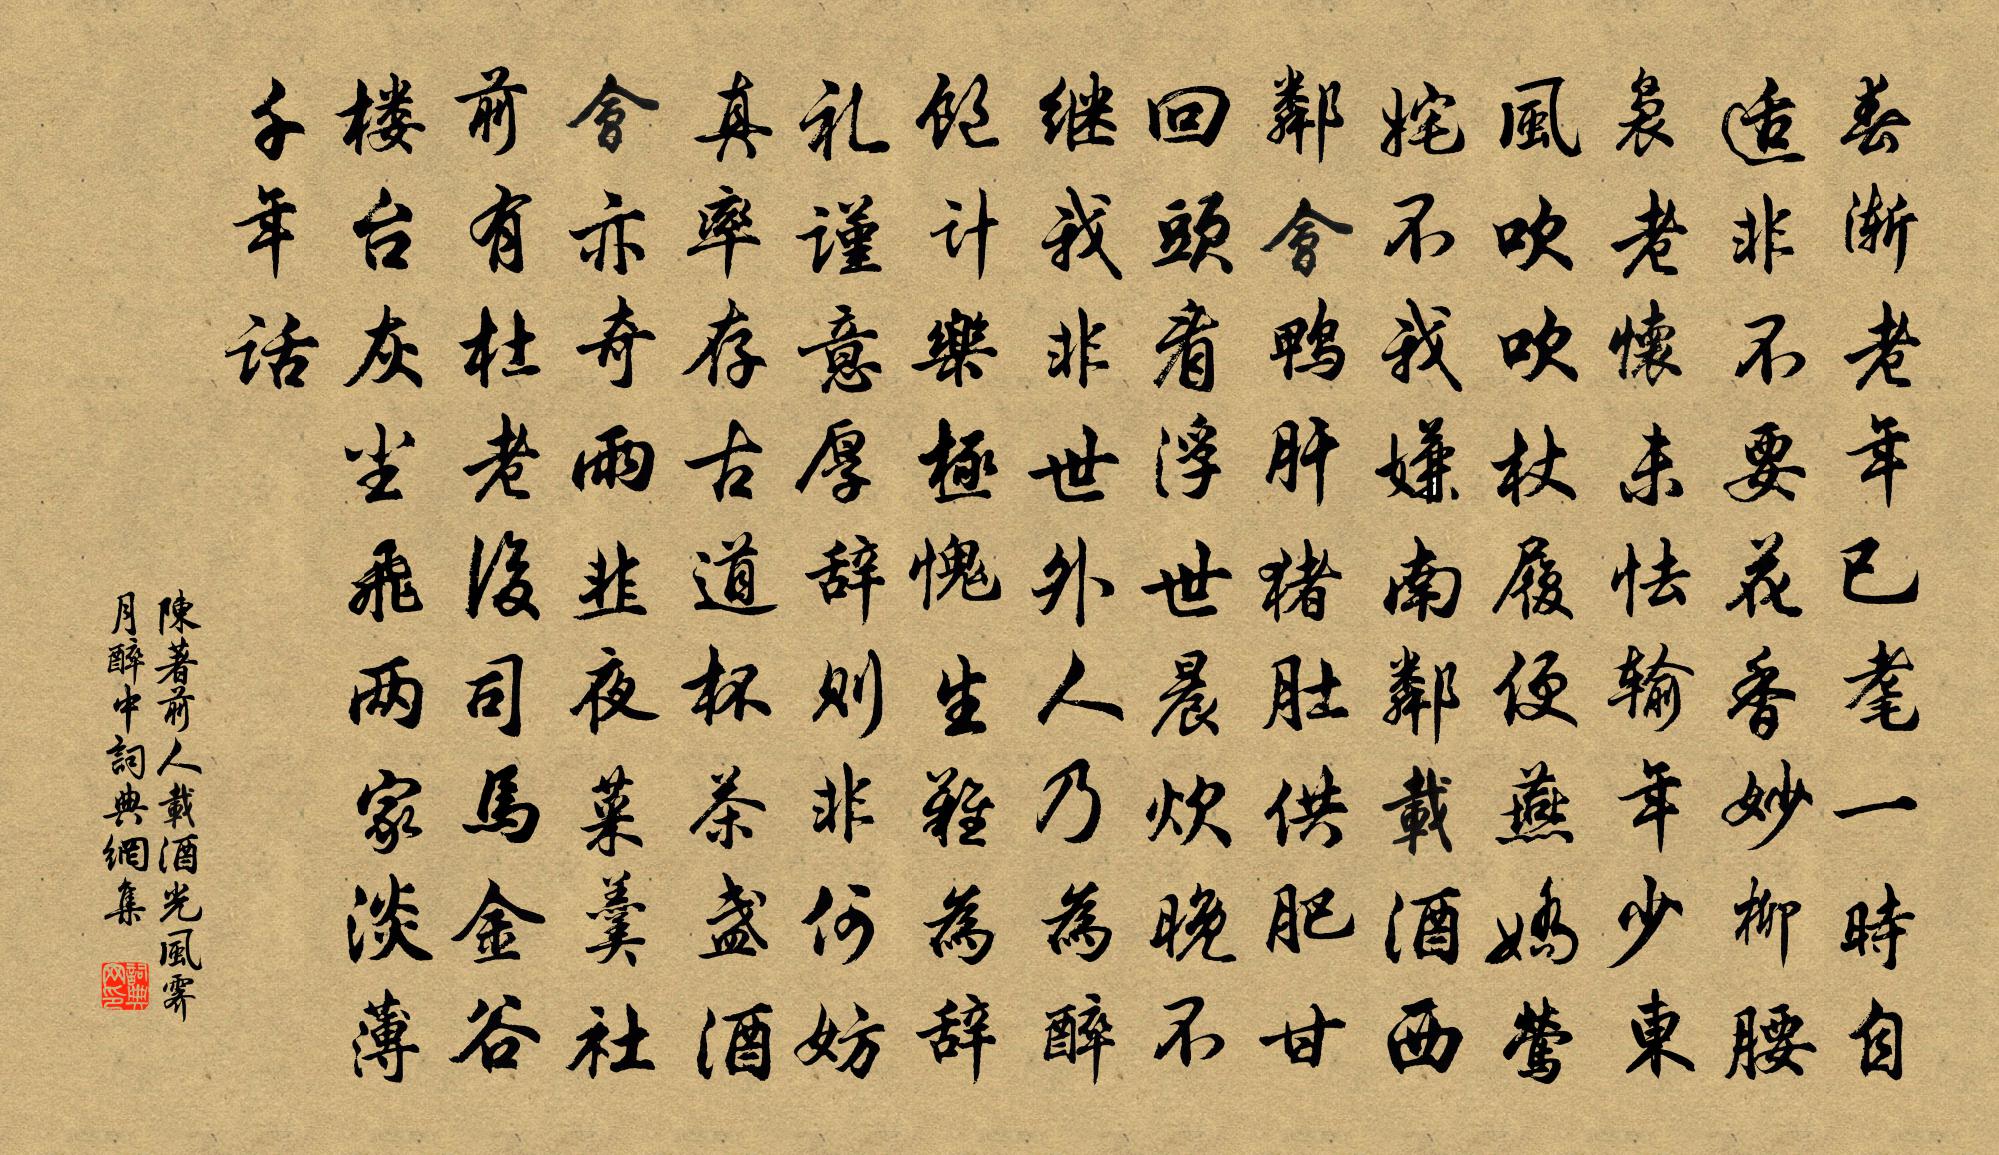 春漸老年已耄一時自
适非不要花香妙柳腰
裊老懷未怯输年少東
風吹吹杖履便燕嬌鶯
姹不我嫌南鄰載酒西
鄰會鴨肝猪肚供肥甘
回頭看浮世晨炊晚不
继我非世外人乃為醉
飽计樂極愧生難為辞
礼謹意厚辞則非何妨
真率存古道杯茶盏酒
會亦奇雨韭夜菜羹社
前有杜老後司馬金谷
楼台灰尘飛两家淡薄
千年话
陳著前人載酒光風霽
月醉中詞典網集
詞典网印